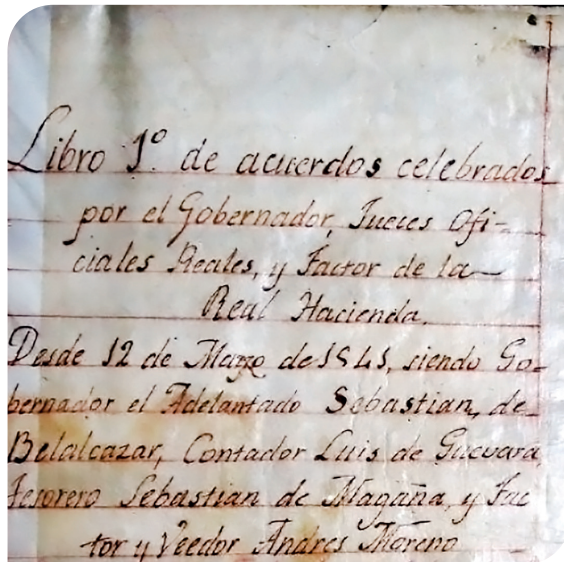 Libro 1º de acuerdos celebrados
por el Gobernador, Jueces Ofi-
ciales Reales, y Factor de la
Real Hacienda.
Desde 12 de Mayo de 1541, siendo Go-
bernador el Adelantado Sebastian, de
Belalcazar, Contador Luis de Guevara,
Tesorero Sebastian de Magaña, y Fac
tor y Veedor Andres Moreno